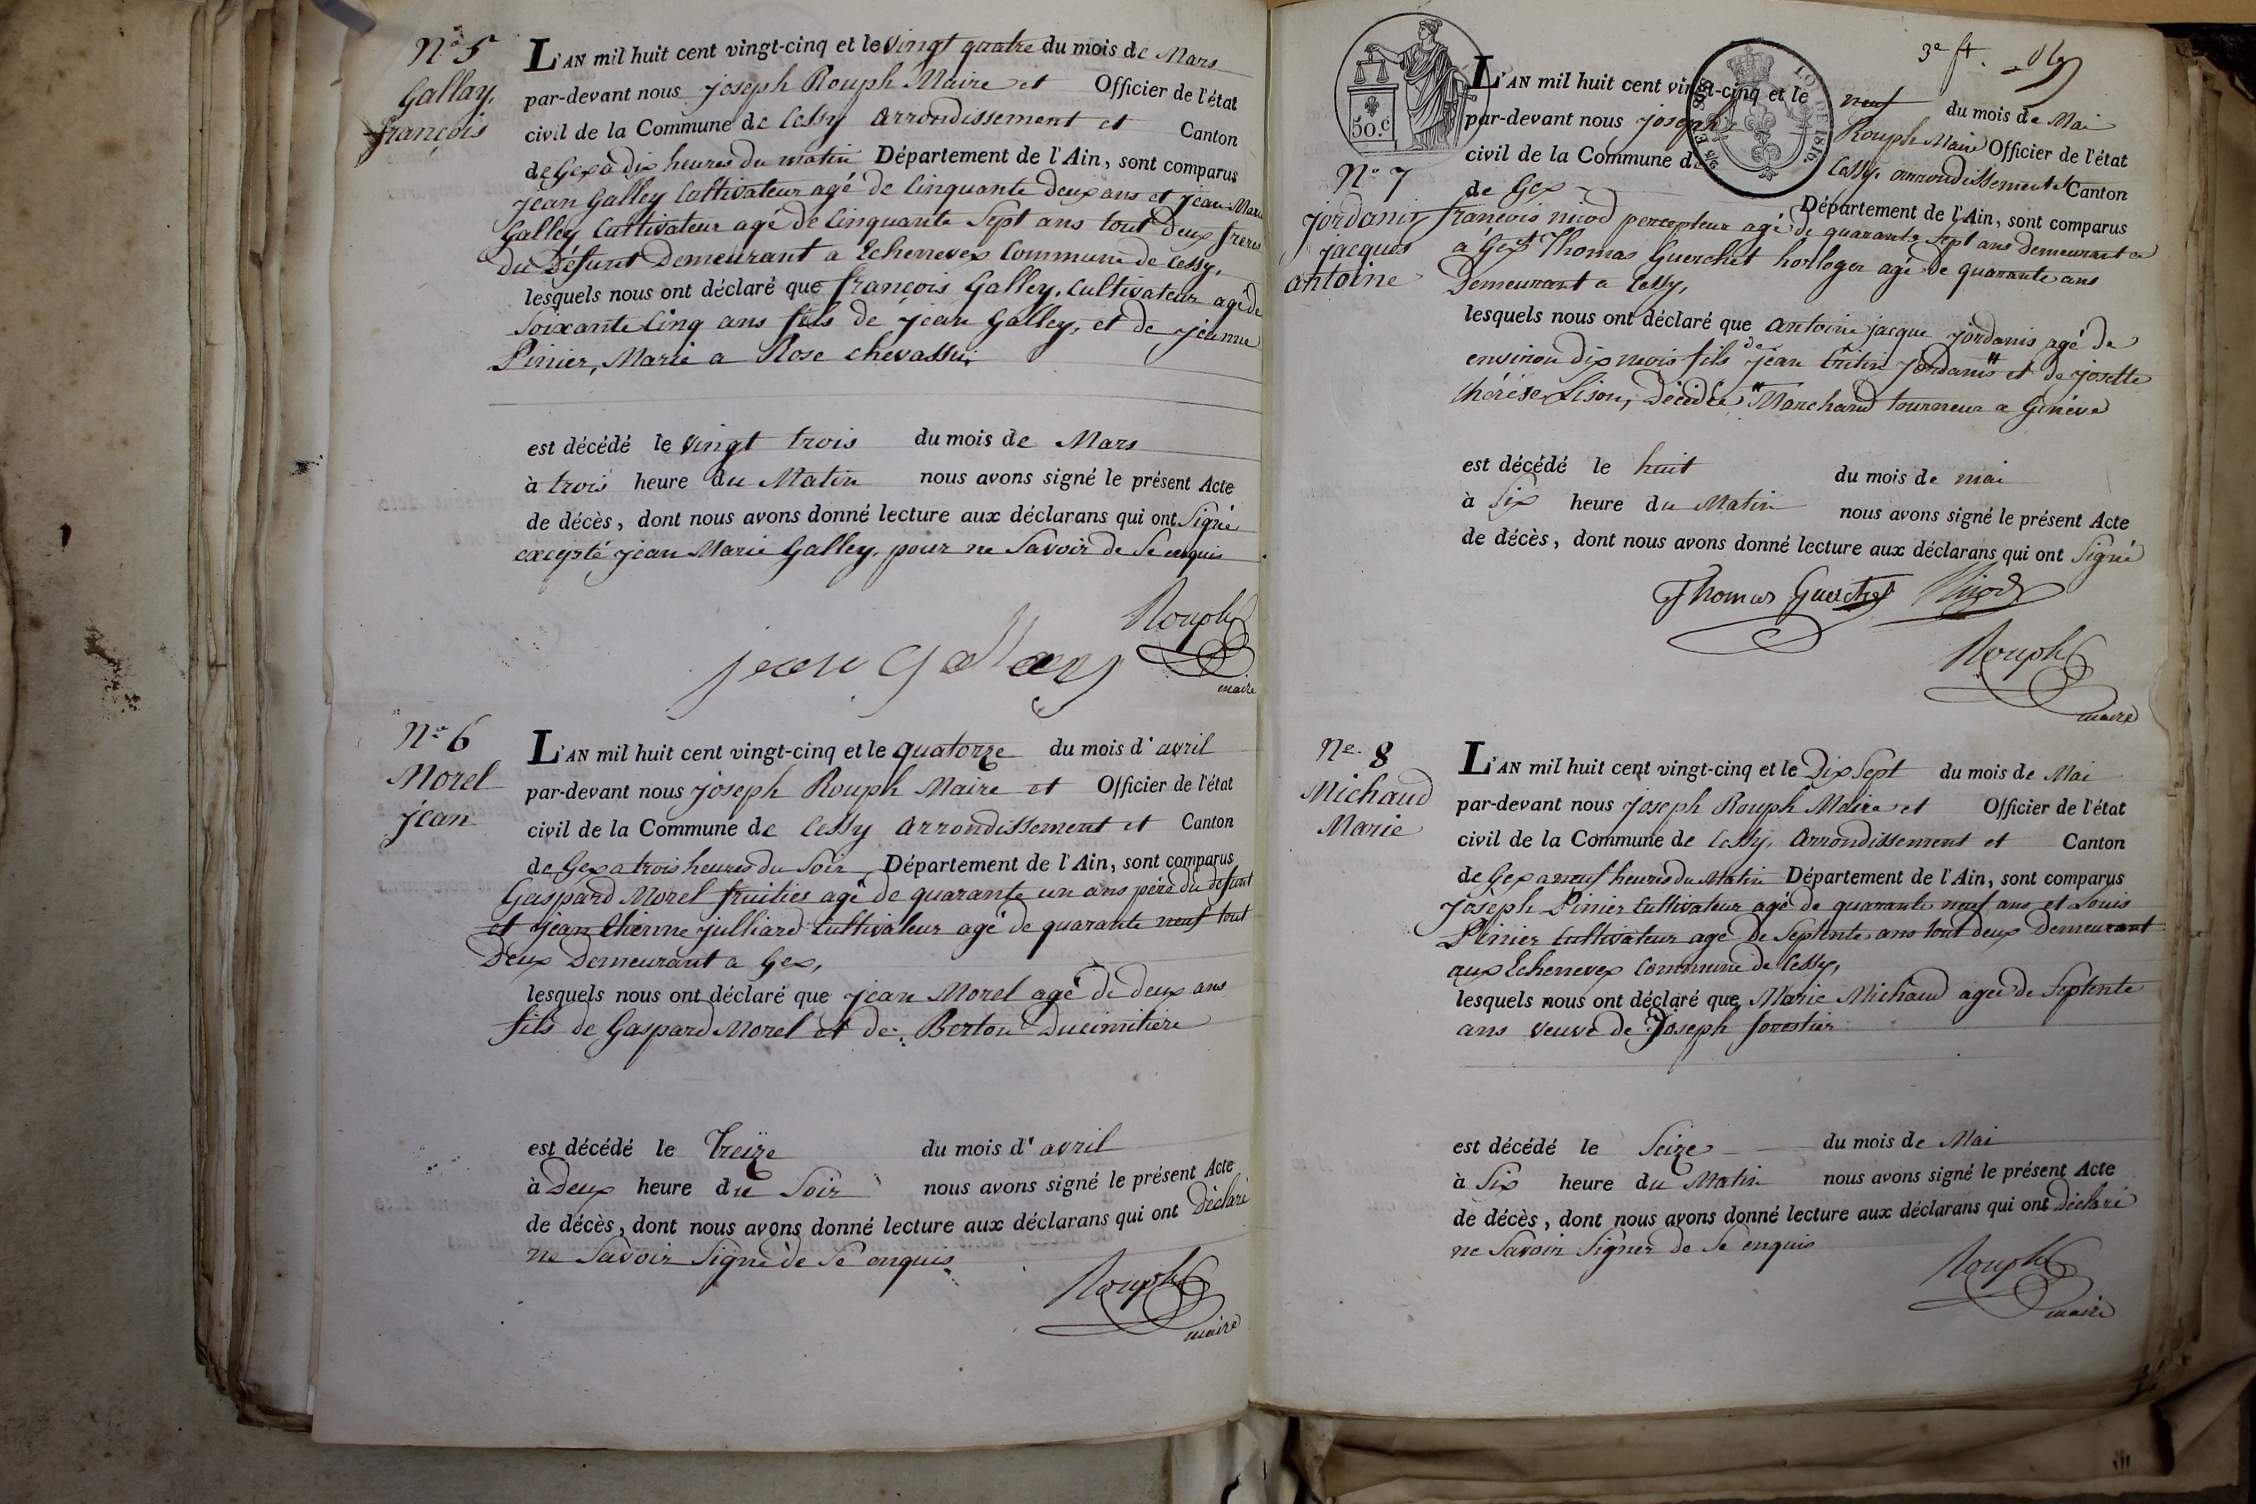 N.º 5
Gallay,
françois
L'AN mil huit cent vingt-cinq et le vingt quatre du mois de Mars
par-devant nous joseph Rouph Maire et Officier de l'état
civil de la Commune de Cessy arrondissement et Canton
de Gex à dix heures du matin Département de l'Ain, sont comparus
jean Galley Cultivateur agé de Cinquante deux ans et jean Marie
Galley Cultivateur agé de Cinquante Sept ans tout deux freres
du Défunt Demeurant a Echenevex Commune de Cessy,
lesquels nous ont déclaré que françois Galley, Cultivateur agé de
Soixante Cinq ans fils de jean Galley, et de jeanne
Pinier, Marié a Rose chevassu;
est décédé le vingt trois du mois de Mars
à trois heure du Matin nous avons signé le présent Acte
de décès, dont nous avons donné lecture aux déclarans qui ont Signé
excepté jean Marie Galley, pour ne Savoir de Se enquis
Rouph
maire
jean Gallay
N.º 6
Morel
jean
L'AN mil huit cent vingt-cinq et le quatorze du mois d'avril
par-devant nous joseph Rouph Maire et Officier de l'état
civil de la Commune de Cessy arrondissement et Canton
de Gex a trois heures du Soir Département de l'Ain, sont comparus
Gaspard Morel fruitier agé de quarante un ans père du défunt
et jean Etienne julliard Cultivateur agé de quarante neuf tout
Deux Demeurant a Gex,
lesquels nous ont déclaré que jean Morel agé de deux ans
fils de Gaspard Morel et de Berton Ducimitière
est décédé le Treize du mois d'avril
à Deux heure du Soir nous avons signé le présent Acte
de décès, dont nous avons donné lecture aux déclarans qui ont déclaré
ne Savoir Signé de Se enquis
Rouph
maire
3e ft.
50 c.
LOI DE 1816
N.º 7
jordanis
jacques
antoine
L'AN mil huit cent vingt-cinq et le neuf du mois de Mai
par-devant nous joseph Rouph Maire Officier de l'état
civil de la Commune de Cessy, arrondissement et Canton
de Gex Département de l'Ain, sont comparus
françois nicod percepteur agé de quarante Sept ans demeurant
à Gex et Thomas Guerchet horloger agé de quarante ans
Demeurant a Cessy,
lesquels nous ont déclaré que antoine jacque jordanis agé de
environ dix mois fils de jean jordanis et de josette
thérése Lison, Décédée Marchand tourneur a Genéve
est décédé le huit du mois de mai
à Six heure du Matin nous avons signé le présent Acte
de décès, dont nous avons donné lecture aux déclarans qui ont Signé
Thomas Guerchet Nicod
Rouph
maire
Ne. 8
Michaud
Marie
L'AN mil huit cent vingt-cinq et le Dix Sept du mois de Mai
par-devant nous joseph Rouph Maire et Officier de l'état
civil de la Commune de Cessy, Arrondissement et Canton
de Gex a neuf heures du Matin Département de l'Ain, sont comparus
joseph Pinier Cultivateur agé de quarante neuf ans et Louis
Pinier Cultivateur agé de Septente ans tout deux Demeurant
aux Echenevex Commune de Cessy,
lesquels nous ont déclaré que Marie Michaud agée de Septente
ans veuve de Joseph forestier
est décédé le Seize du mois de Mai
à Six heure du Matin nous avons signé le présent Acte
de décès, dont nous avons donné lecture aux déclarans qui ont Déclaré
ne Savoir Signer de Se enquis
Rouph
maire